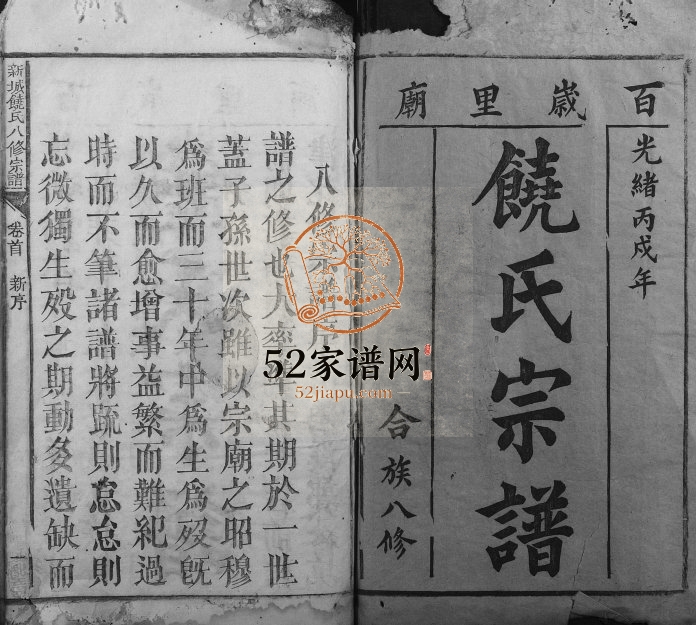 百歲里廟
光緒丙戌年
饒氏宗譜
合族八修
八修宗譜序
譜之修也大率準其期於一世
蓋子孫世次雖以宗廟之昭穆
爲班而三十年中爲生爲歿旣
以久而愈增事益繁而難紀過
時而不筆諸譜將疏則怠怠則
忘微獨生歿之期動多遺缺而
新城饒氏八修宗譜
卷首
新序
52家谱网
52jiapu.com